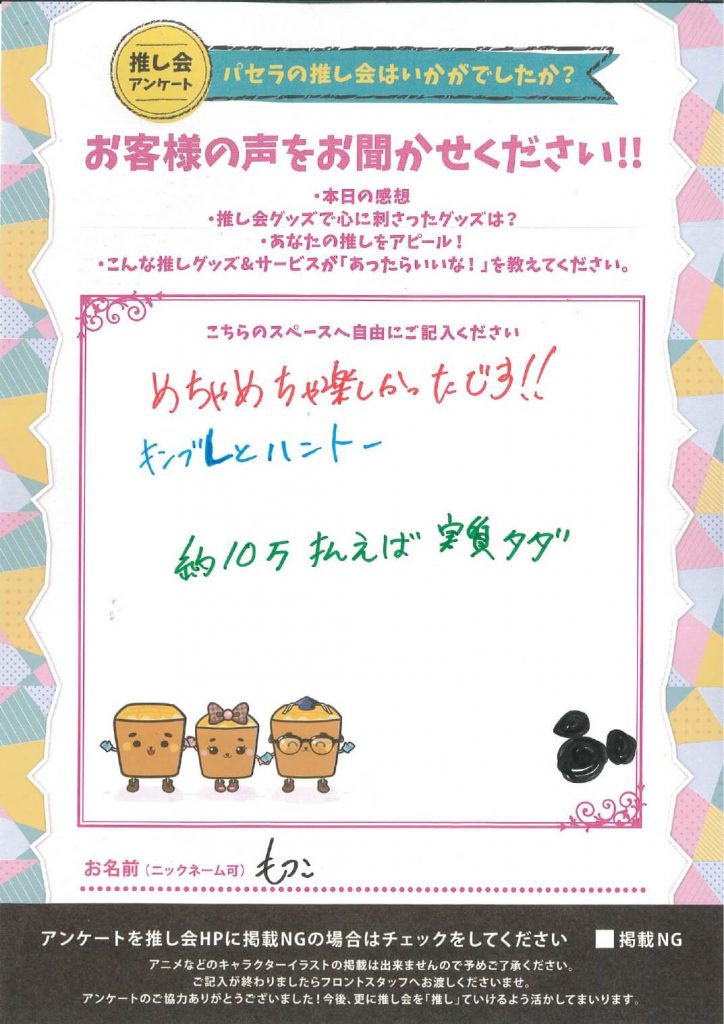 推し会
アンケート
パセラの推し会はいかがでしたか？
お客様の声をお聞かせください!!
・本日の感想
・推し会グッズで心に刺さったグッズは？
・あなたの推しをアピール！
・こんな推しグッズ&サービスが「あったらいいな！」を教えてください。
こちらのスペースへ自由にご記入ください
めちゃめちゃ楽しかったです!!
キンブレとハントー
約10万払えば 実質タダ
お名前（ニックネーム可） もつこ
アンケートを推し会HPに掲載NGの場合はチェックをしてください ■掲載NG
アニメなどのキャラクターイラストの掲載は出来ませんので予めご了承ください。
ご記入が終わりましたらフロントスタッフへお渡しくださいませ。
アンケートのご協力ありがとうございました！今後、更に推し会を「推し」ていけるよう活かしてまいります。